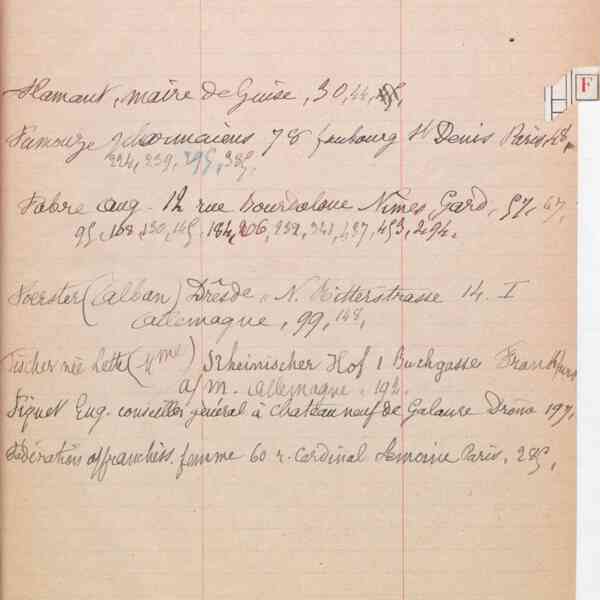 F
Flamant, maire de Guise, 30, 44,
Fumouze pharmaciens 78 faubourg St Denis Paris
224, 239, 295, 385.
Fabre Aug. 12 rue Bourdaloue Nîmes, Gard, 57, 67,
95, 108, 130, 145, 184, 206, 232, 341, 437, 453, 494.
Foerster (Alban) Drêsde. N. Ritterstrasse 14. I
Allemagne, 99, 148,
Fischer née Lette (Mme) Rheinischer Hof 1 Buchgasse Frankfurt
a/ m. Allemagne. 192.
Fiquet Eug. conseiller général à Chateauneuf de Galaure Drôme 197,
Fédérations affranchiss. femme 60 r. Cardinal Lemoine Paris, 285,